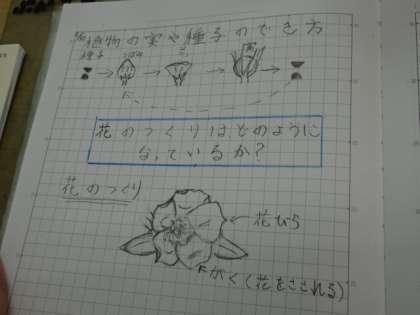 植物の実や種子のでき方
種子
花のつくりはどのように
なっているか?
花のつくり
花びら
がく(花をささえる)